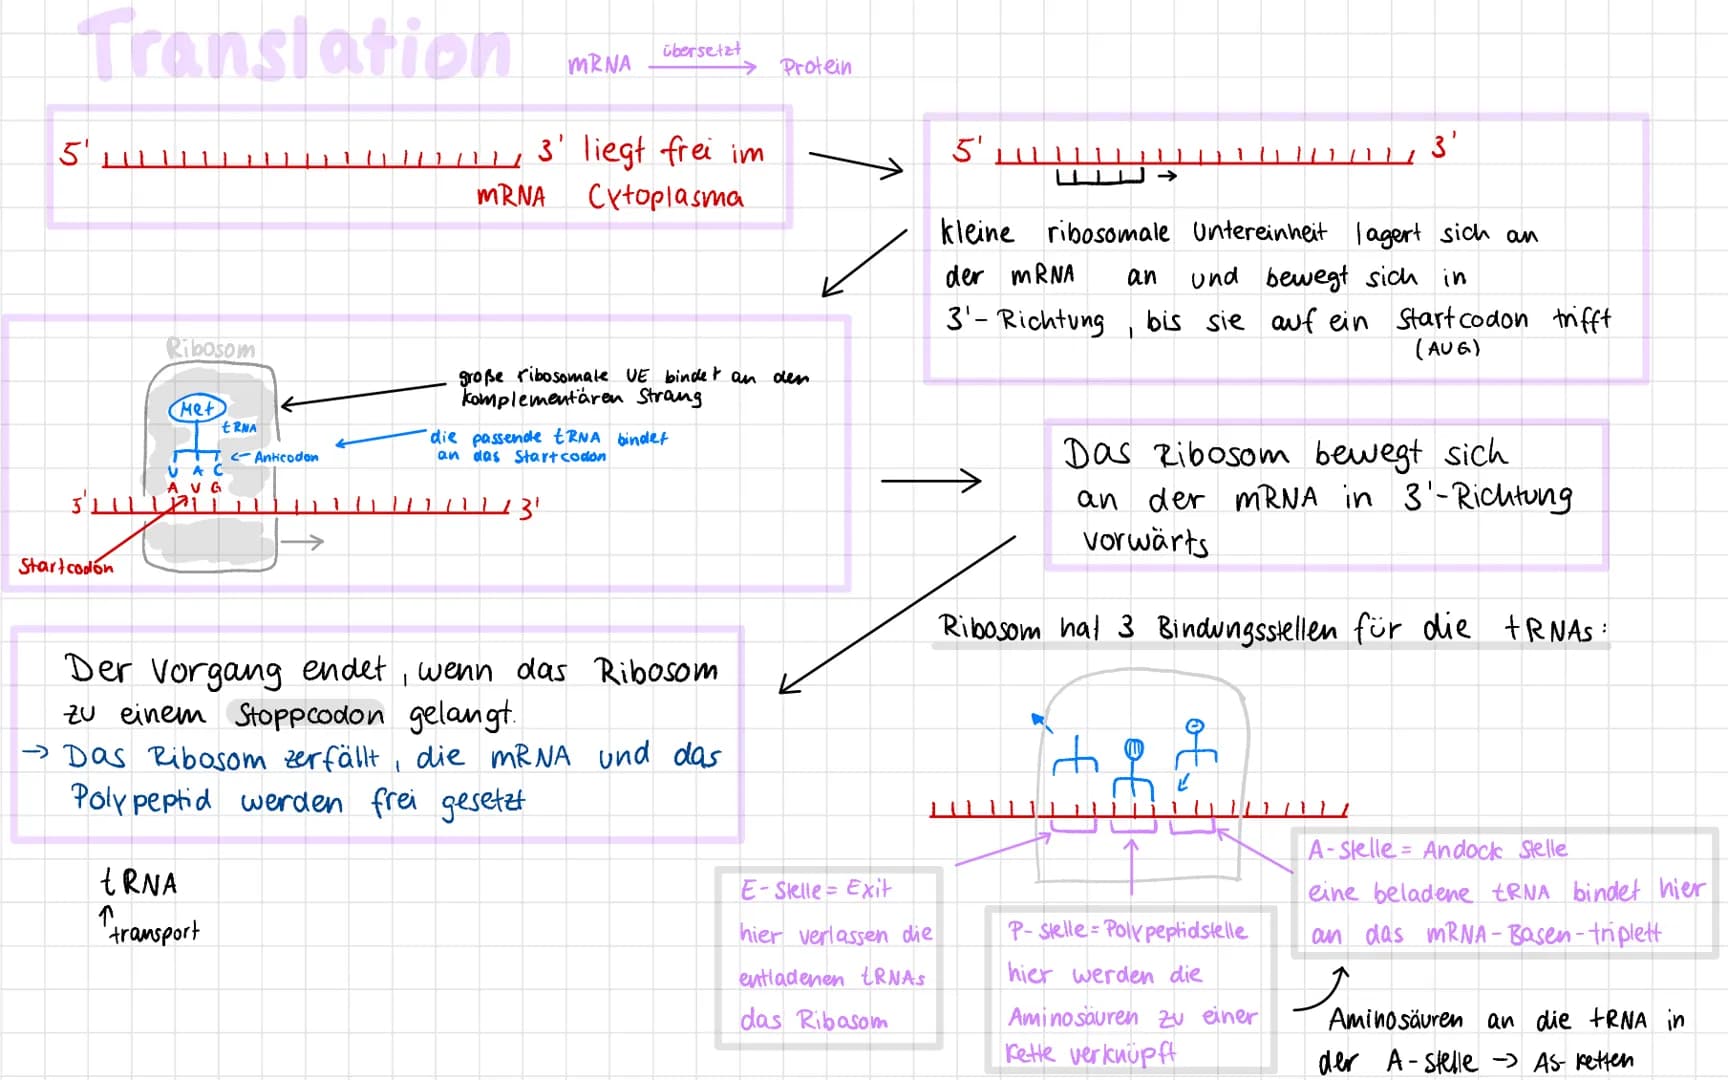 Translation
mRNA übersetzt Protein
5' 3' liegt frei im
mRNA Cytoplasma
5' 3'
kleine ribosomale Untereinheit lagert sich an
der mRNA an und bewegt sich in
3'-Richtung, bis sie auf ein Startcodon trifft
(AUG)
Ribosom
große ribosomale UE bindet an den
komplementären Strang
Met
tRNA
die passende tRNA bindet
an das Startcodon
Anticodon
U A C
A U G
5' 3'
Startcodon
Das Ribosom bewegt sich
an der mRNA in 3'-Richtung
vorwärts
Der Vorgang endet, wenn das Ribosom
zu einem Stoppcodon gelangt.
→ Das Ribosom zerfällt, die mRNA und das
Polypeptid werden frei gesetzt
tRNA
↑
transport
Ribosom hat 3 Bindungsstellen für die tRNAs:
E-Stelle = Exit
hier verlassen die
entladenen tRNAs
das Ribosom
P-Stelle = Polypeptidstelle
hier werden die
Aminosäuren zu einer
Kette verknüpft
A-Stelle = Andock Stelle
eine beladene tRNA bindet hier
an das mRNA-Basen-triplett
Aminosäuren an die tRNA in
der A-Stelle → AS-Ketten